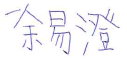 余易澄